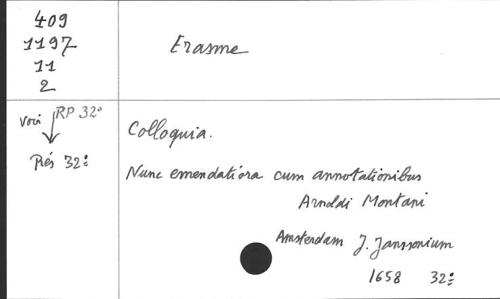 409
1197
11
2
Erasme
voir RP 32º
Rés 32º
Colloquia.
Nunc emendatiora cum annotationibus
Arnoldi Montani
Amsterdam J. Janssonium
1658 32º